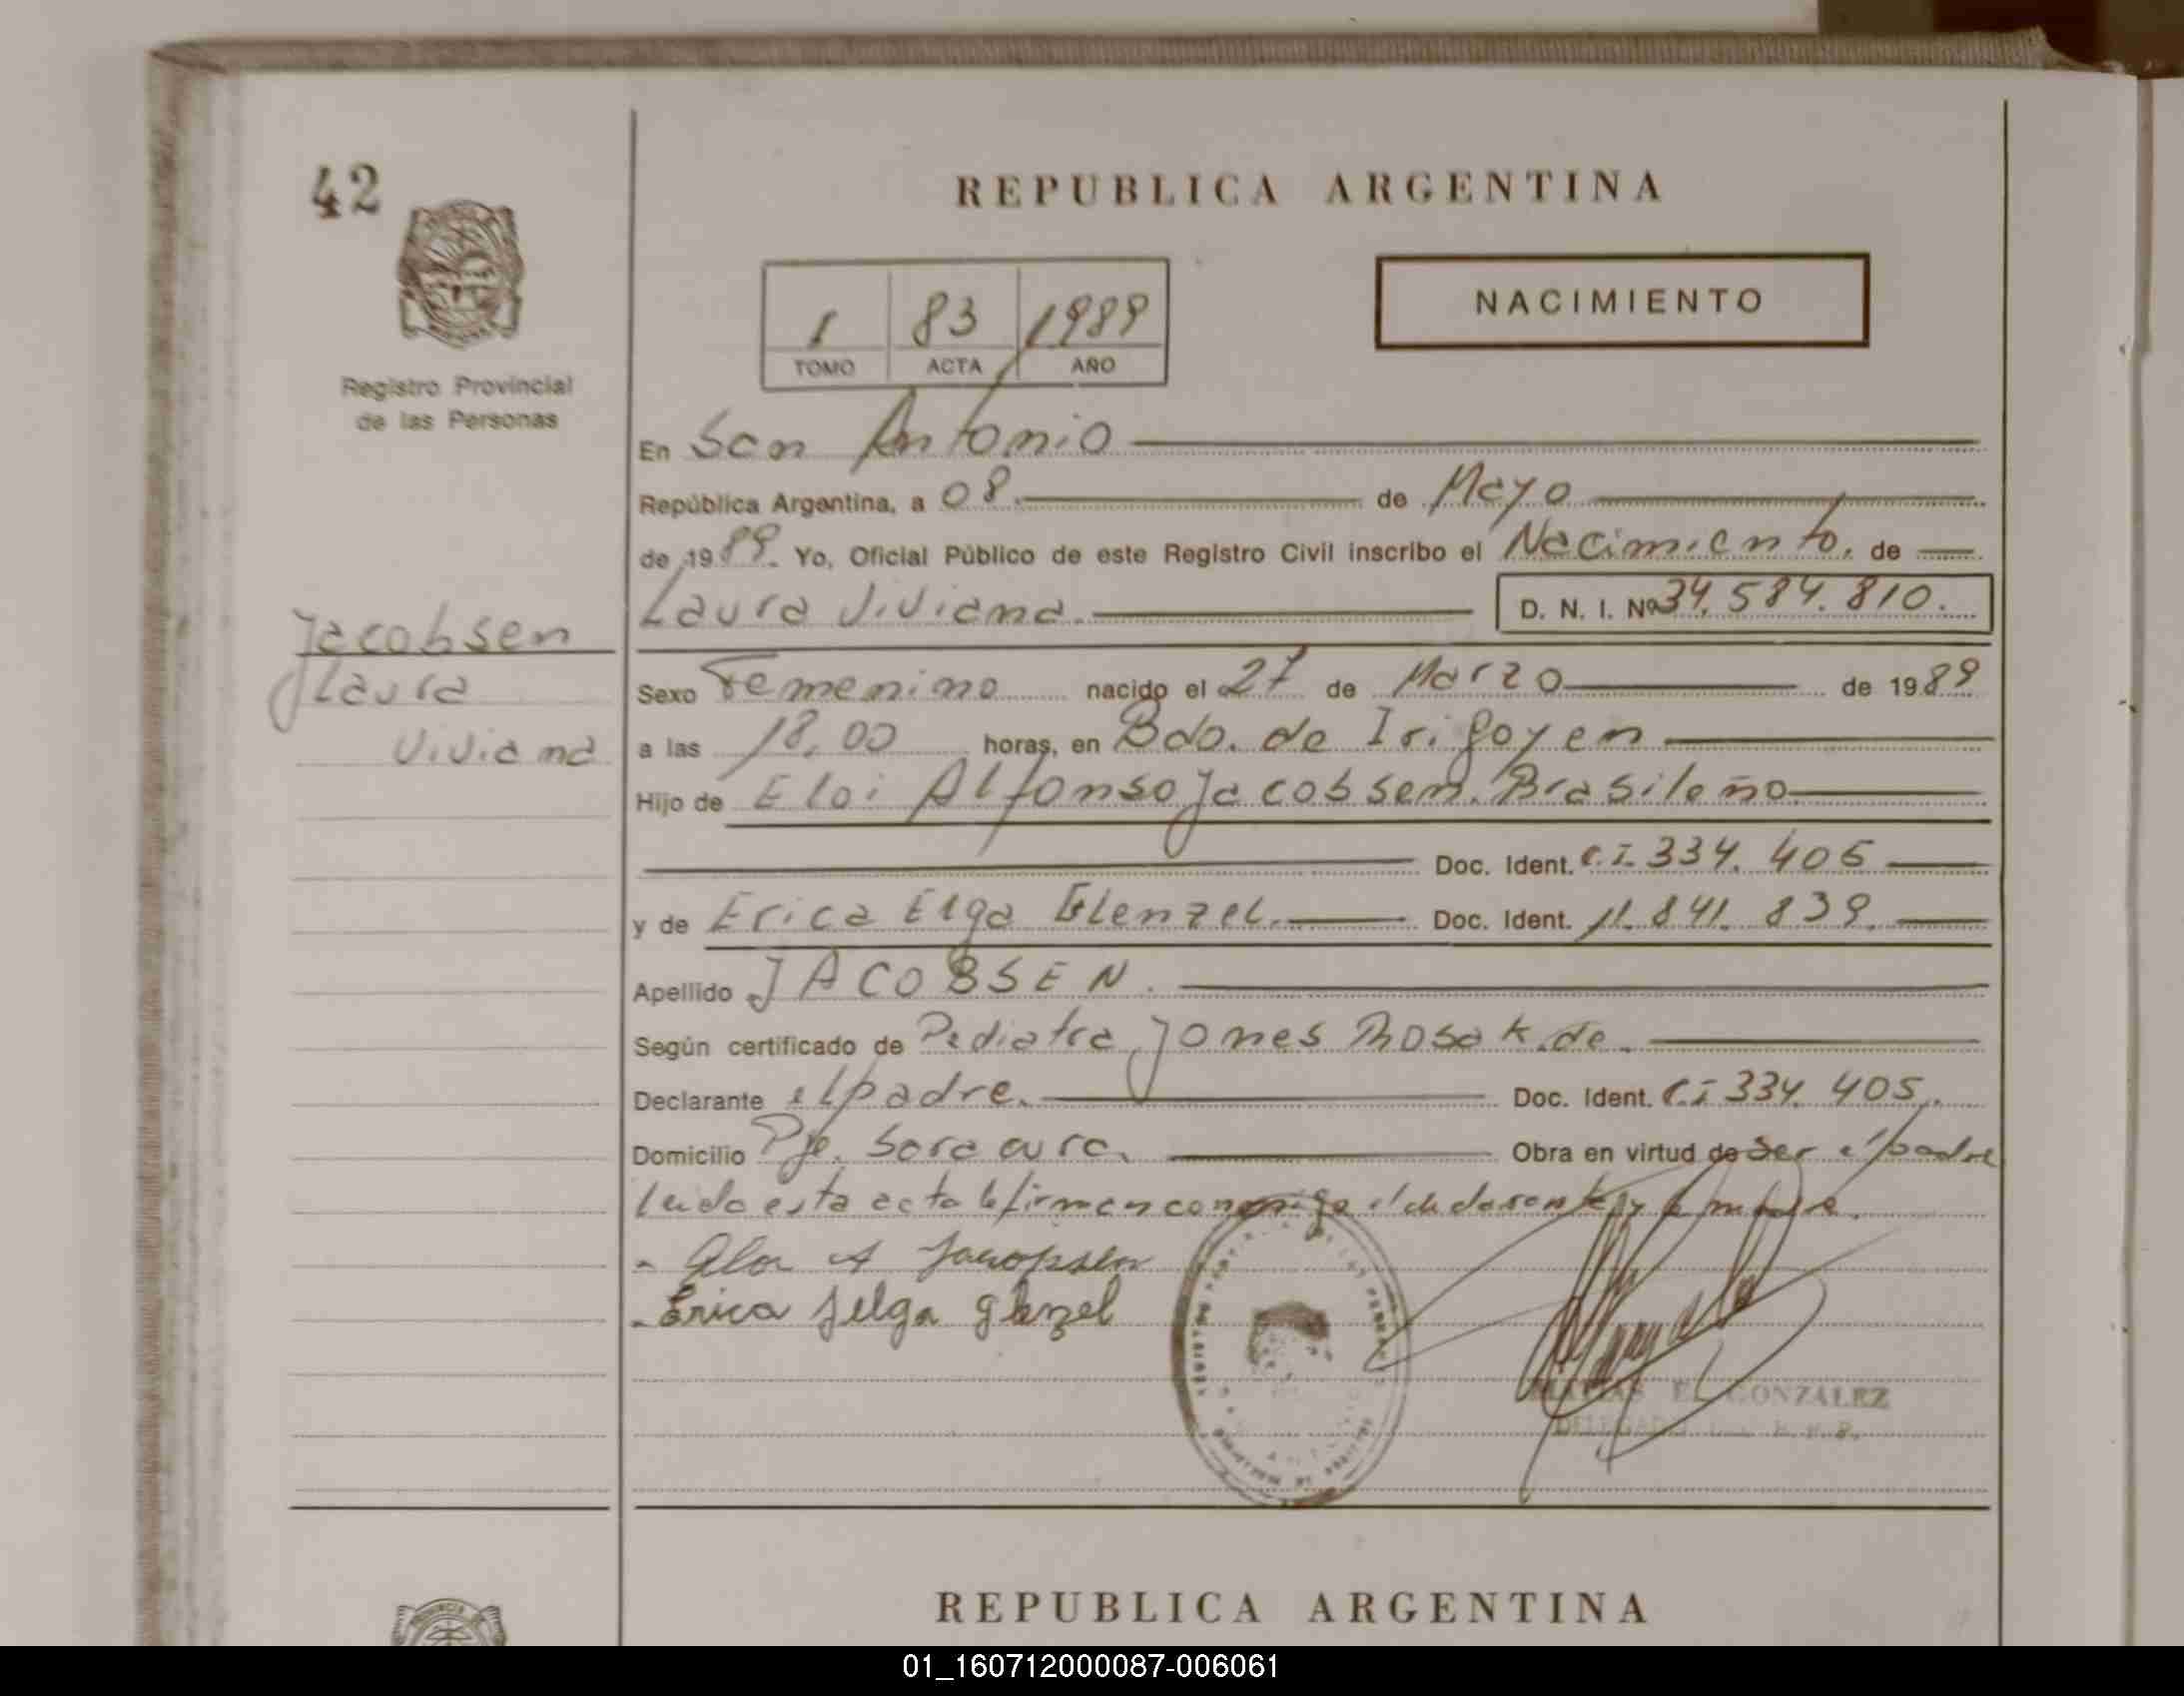 42
REPUBLICA ARGENTINA
NACIMIENTO
1 83 1989
TOMO ACTA AÑO
Registro Provincial
de las Personas
En San Antonio
República Argentina, a 08. de Mayo
de 1989. Yo, Oficial Público de este Registro Civil inscribo el Nacimiento. de
Laura Viviana. D. N. I. Nº 34.584.810.
Jacobsen
Laura
Viviana
Sexo Femenino nacido el 27 de Marzo de 1989
a las 18,00 horas, en Bdo. de Irigoyen
Hijo de Eloi Alfonso Jacobsen. Brasileño
Doc. Ident. C.I. 334.405
y de Erica Elga Glenzel. Doc. Ident. 11.841.839.
Apellido JACOBSEN.
Según certificado de Pediatra Jones Rosa K. de.
Declarante el padre. Doc. Ident. C.I 334.405.
Domicilio Pje. Obra en virtud de Ser el padre
leida esta acta la firman conmigo el declarante y la madre.
A Jacopsen
Erica Jelga Glenzel
MATIAS E. GONZALEZ
REPUBLICA ARGENTINA
01_160712000087-006061